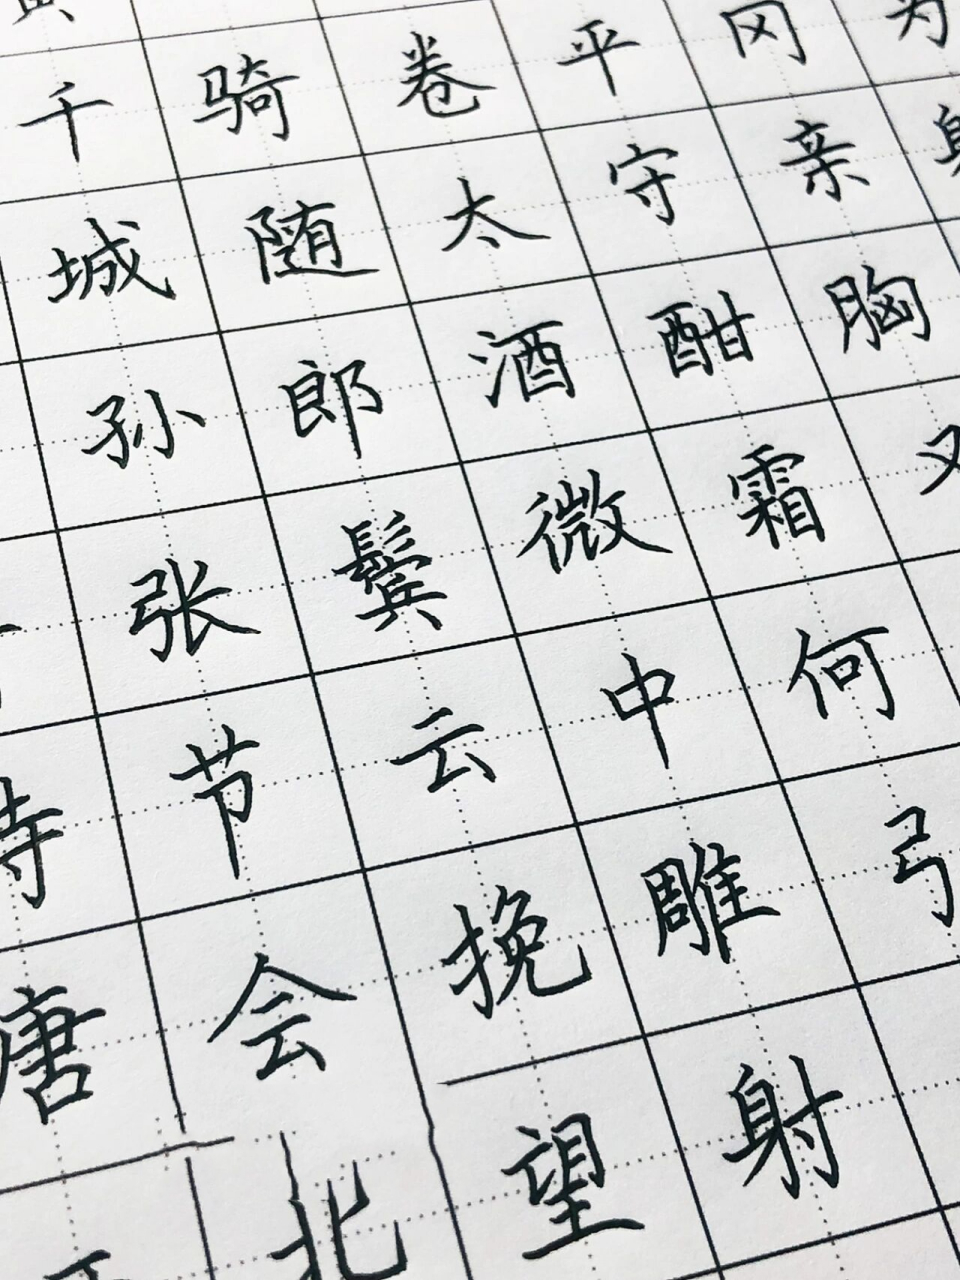 千骑卷平冈为
城随太守亲
孙郎酒酣胸
张鬓微霜又
持节云中何
唐会挽雕弓
北望射